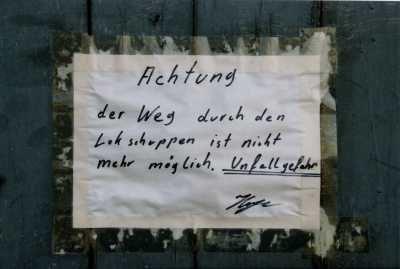 Achtung
der Weg durch den
Lokschuppen ist nicht
mehr möglich. Unfallgefahr